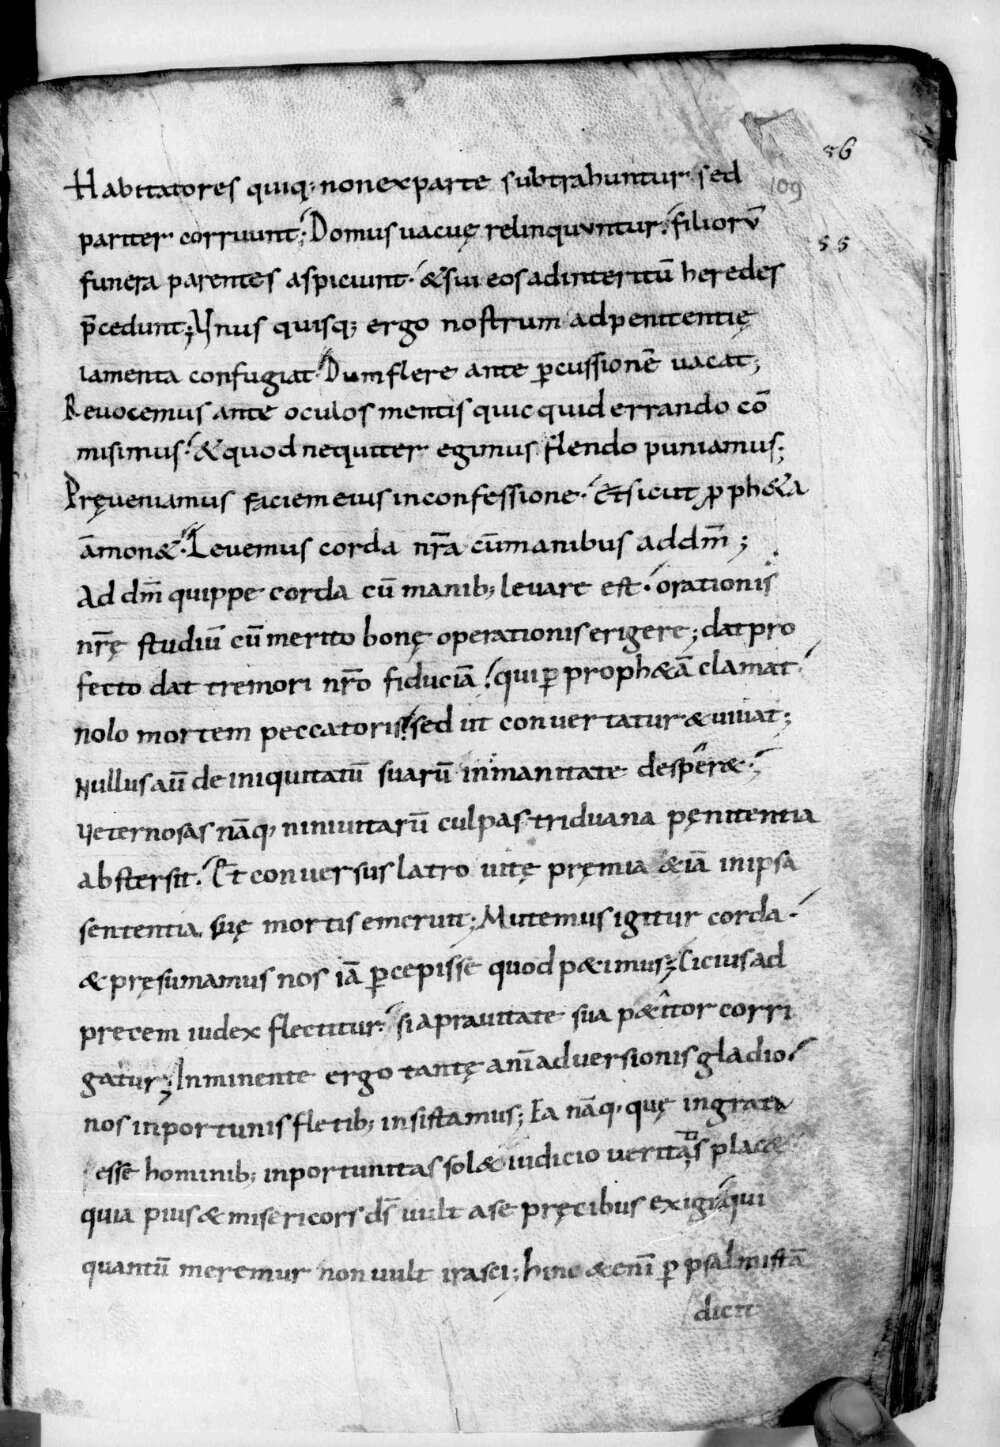 56
109
Habitatores quiq; non exparte subtrahuntur. sed
pariter corruunt; Domus uacuę relinquuntur. filiorū
55
funera parentes aspiciunt. & sui eos adinteritū heredes
p̄cedunt; Vnus quisq; ergo nostrum adpenitentię
lamenta confugiat. Dum flere ante p̲cussionē uacat;
Reuocemus ante oculos mentis quic quid errando cō
misimus. & quod nequiter egimus flendo puniamus;
Pręueniamus faciem eius inconfessione. Et sicut p̲ ph&a
āmon&. Leuemus corda nr̄a cūmanibus addm̄;
Ad dm̄ quippe corda cū manib; leuare est. orationis
nr̄ę studiū cū merito bonę operationis erigere; dat pro
fecto dat tremori nr̄o fiduciā. qui p̲ proph&ā clamat.
nolo mortem peccatoris. sed ut conuertatur & uiuat;
Nullus aū de iniquitatū suarū inmanitate desper&.
Veternosas nāq; niniuitarū culpas triduana pęnitentia
abstersit. Et conuersus latro uitę pręmia &iā inipsa
sententia suę mortis emeruit; Mutemus igitur corda.
& pręsumamus nos iā p̲cepisse quod p&imus; Cicius ad
precem iudex flectitur. si aprauitate sua p&itor corri
gatur; Inminente ergo tantę anīaduersionis gladio.
nos inportunis fletib; insistamus; Ea nāq; quę ingrata
esse hominib; inportunitas sol& iudicio ueritatis plac&
quia pius & misericors ds̄ uult ase pręcibus exigi. qui
quantū meremur non uult irasci; hinc &enī p̲ psalmistā
dicit